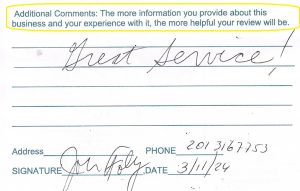 Additional Comments: The more information you provide about this
business and your experience with it, the more helpful your review will be.
Great Service!
Address PHONE 2013167753
SIGNATURE John Foly DATE 3/11/24